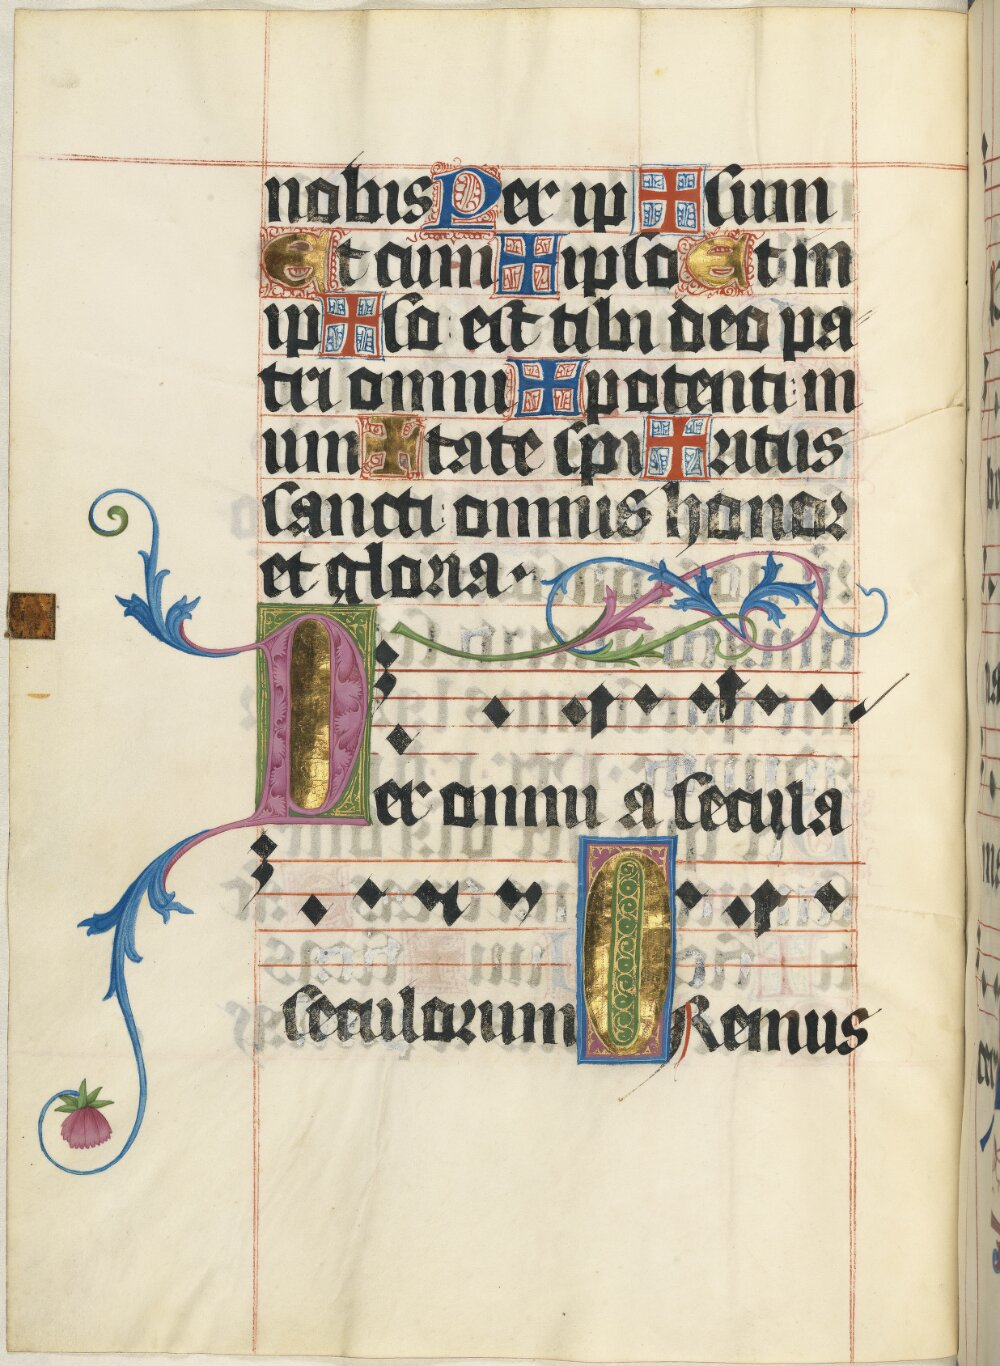 nobis Per ip ✠ sum
Et cum ✠ ipso Et in
ip ✠ so est tibi deo pa
tri omni ✠ potenti: in
uni ✠ tate spi ✠ ritus
sancti: omnis honor
et gloria.
Per omni a secula
seculorum ORemus